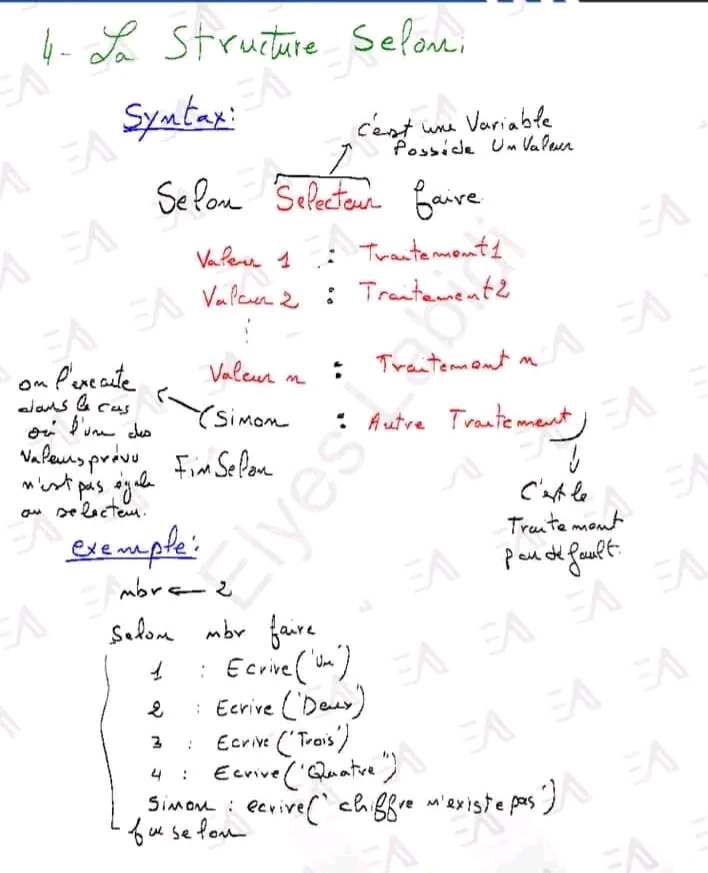 4- La Structure Selon:
Syntax:
c'est une Variable
Possède Un Valeur
Selon Selecteur faire
Valeur 1 : Traitement1
Valeur 2 : Traitement2
⋮
Valeur n : Traitement n
Sinon : Autre Traitement
FinSelon
on l'execute
dans le cas
où l'un des
Valeurs prévu
n'est pas égale
au selecteur.
C'est le
Traitement
par default.
exemple:
nbr ← 2
Selon nbr faire
1 : Ecrire('Un')
2 : Ecrire('Deux')
3 : Ecrire('Trois')
4 : Ecrire('Quatre')
Sinon : ecrire('chiffre n'existe pas')
fin selon
Elyes Labidi